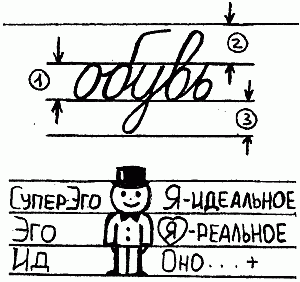 ②
① обувь
③
СуперЭго Я-идеальное
Эго Я-реальное
Ид Оно...+